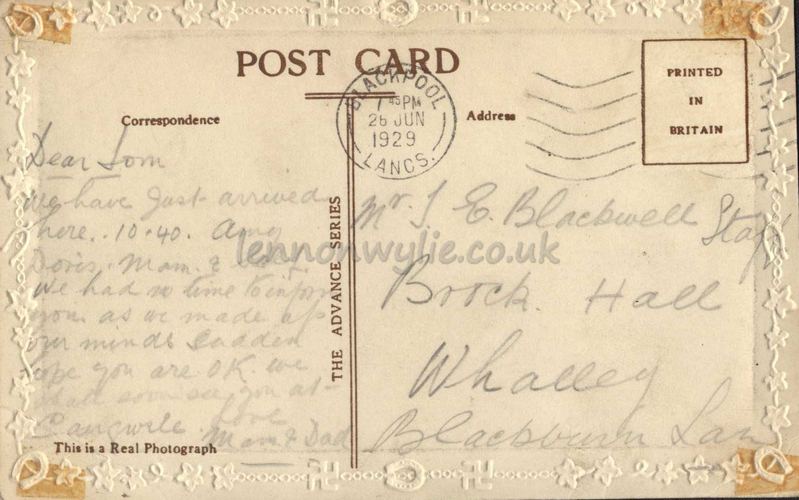 POST CARD
BLACKPOOL
45 PM
26 JUN
1929
LANCS.
PRINTED
IN
BRITAIN
Correspondence
Address
Dear Tom
We have Just arrived
here. 10.40. Amy
Doris. Mam. &
We had no time to inform
you as we made up
our minds sudden
hope you are OK. we
shall soon see you at
Love
Mam & Dad
This is a Real Photograph
THE ADVANCE SERIES
Mr. T E. Blackwell
Staff
Brock Hall
Whalley
Blackburn Lan
lennonwylie.co.uk